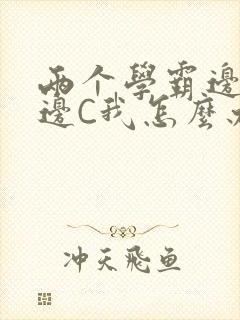 两个學霸邊
邊C我怎麼
冲天飛鱼